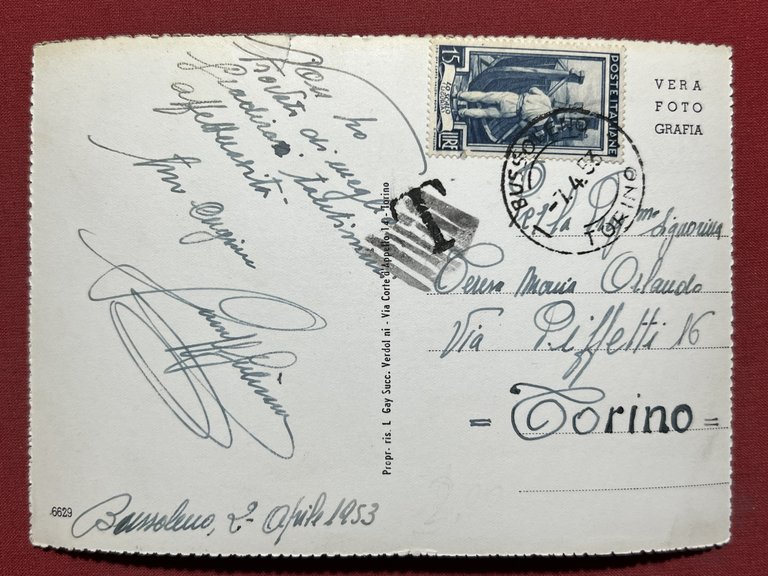 Non ho
trovato di meglio
Gradirai tantissime
affettuosità -
tuo cugino
Bussoleno, 2 Aprile 1953
6629
Propr. ris. L. Gay Succ. Verdol ni - Via Corte d'Appello 14 - Torino
T
15
LIRE
POSTE ITALIANE
BUSSOLENO
-7.4.53
TORINO
VERA
FOTO
GRAFIA
Signorina
Teresa Maria Orlando
Via Piffetti 16
= Torino =